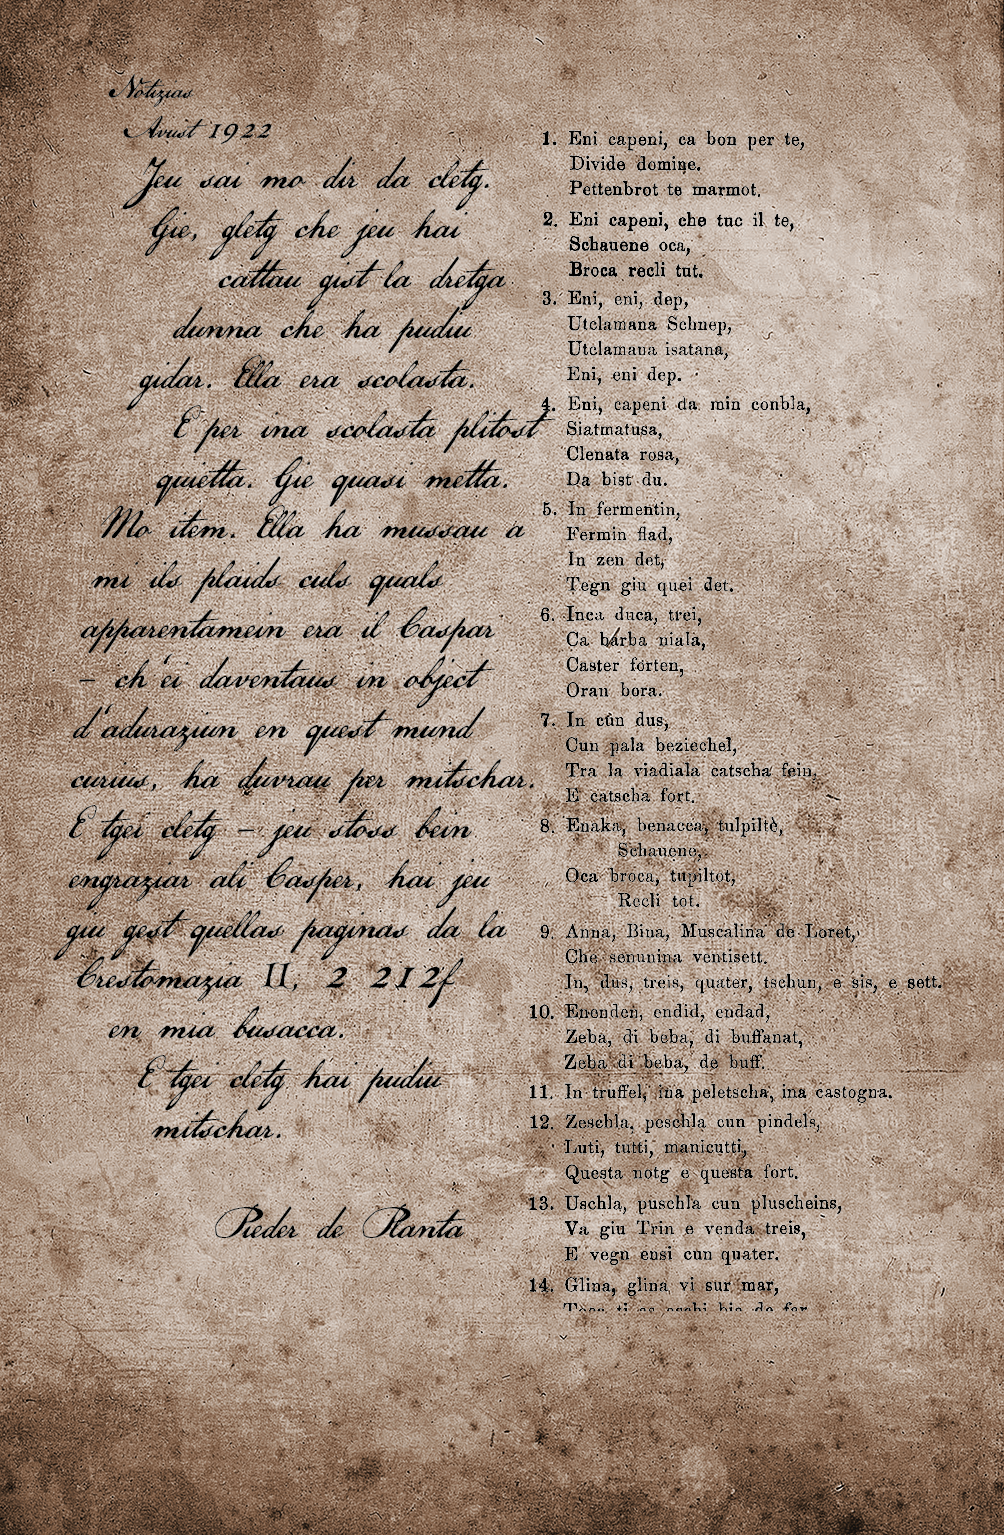 Notizias
Avust 1922
Jeu sai mo dir da cletg.
Gie, gletg che jeu hai
cattau gist la dretga
dunna che ha pudiu
gidar. Ella era scolasta.
E per ina scolasta plitost
quietta. Gie quasi metta.
Mo item. Ella ha mussau a
mi ils plaids culs quals
apparentamein era il Caspar
– ch'ei daventaus in object
d'aduraziun en quest mund
curius, ha duvrau per mitschar.
E tgei cletg – jeu stoss bein
engraziar ali Casper, hai jeu
giu gest quellas paginas da la
Crestomazia II, 2 212f
en mia busacca.
E tgei cletg hai pudiu
mitschar.
Pieder de Planta
1. Eni capeni, ca bon per te,
Divide domine.
Pettenbrot te marmot.
2. Eni capeni, che tuc il te,
Schauene oca,
Broca recli tut.
3. Eni, eni, dep,
Utclamana Schnep,
Utclamana isatana,
Eni, eni dep.
4. Eni, capeni da min conbla,
Siatmatusa,
Clenata rosa,
Da bist du.
5. In fermentin,
Fermin flad,
In zen det,
Tegn giu quei det.
6. Inca duca, trei,
Ca barba niala,
Caster forten,
Oran bora.
7. In cûn dus,
Cun pala beziechel,
Tra la viadiala catscha fein,
E catscha fort.
8. Enaka, benacea, tulpiltè,
Schauene,
Oca broca, tupiltot,
Recli tot.
9. Anna, Bina, Muscalina de Loret,
Che senunina ventisett.
In, dus, treis, quater, tschun, e sis, e sett.
10. Enonden, endid, endad,
Zeba, di beba, di buffanat,
Zeba di beba, de buff.
11. In truffel, ina peletscha, ina castogna.
12. Zeschla, peschla cun pindels,
Luti, tutti, manicutti,
Questa notg e questa fort.
13. Uschla, puschla cun pluscheins,
Va giu Trin e venda treis,
E vegn ensi cun quater.
14. Glina, glina vi sur mar,